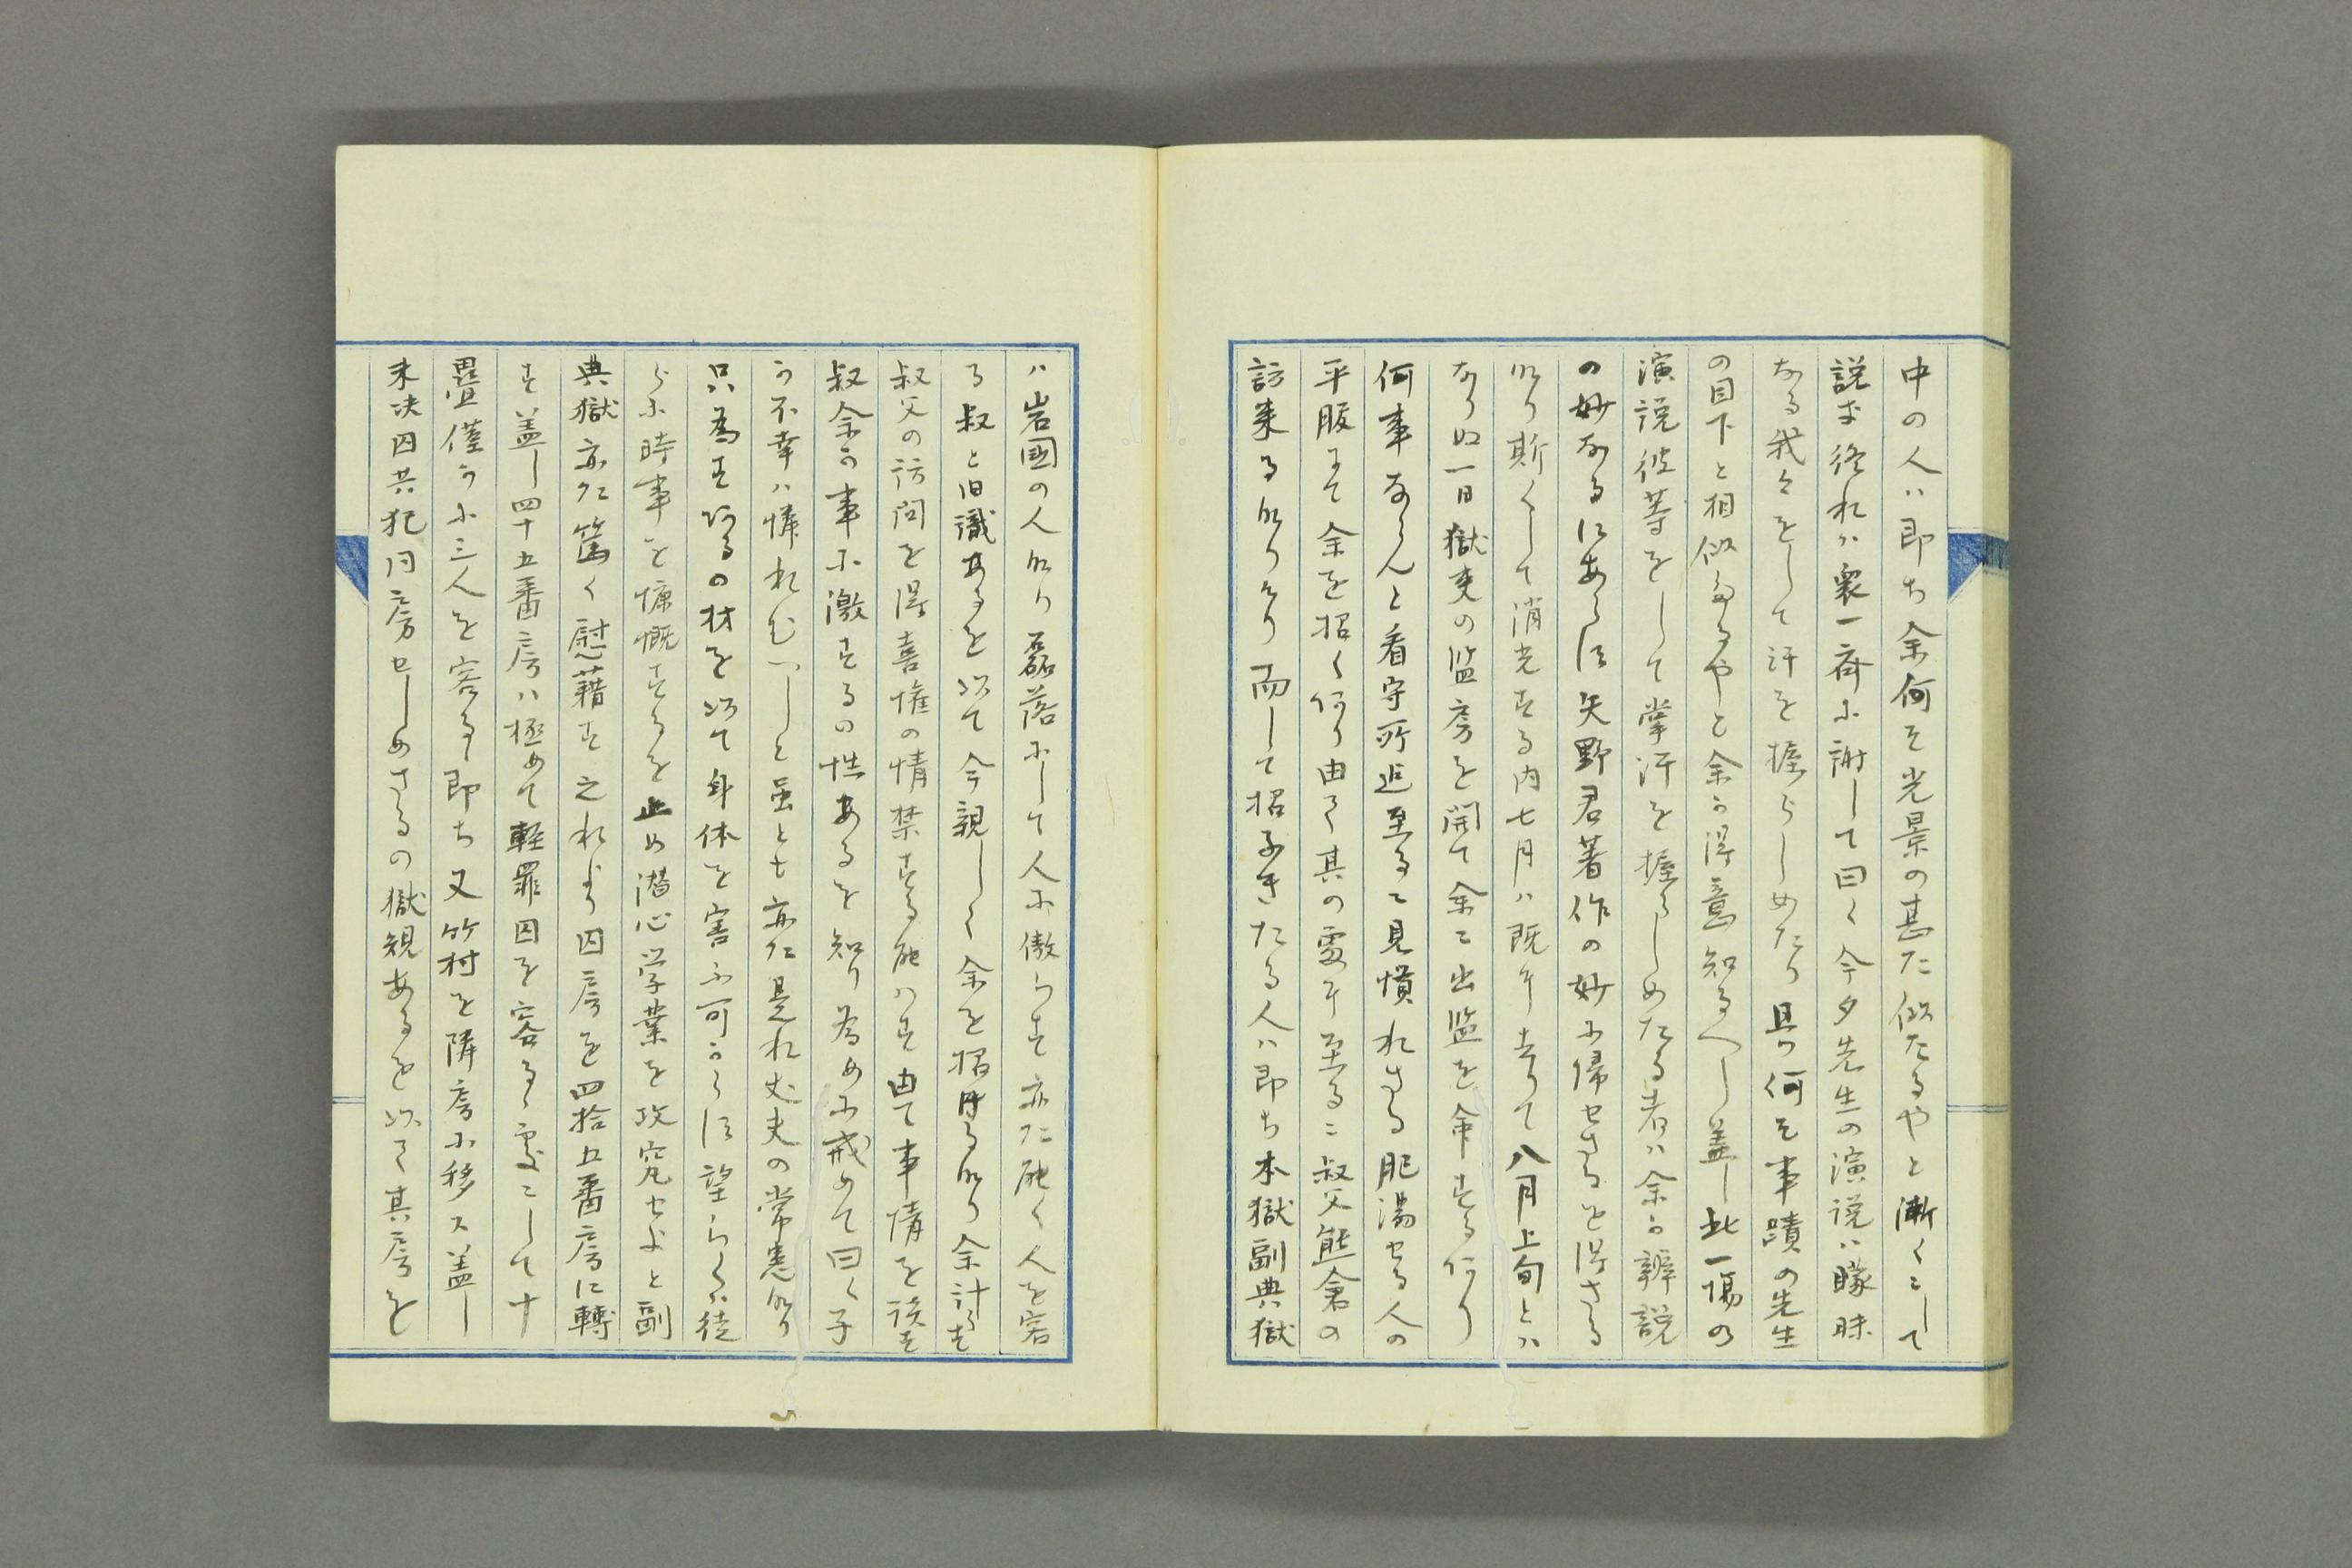 中の人ハ即ち余何そ光景の甚た似たるやと漸くにして
説き終れハ衆一斉に謝して曰く今夕先生の演説ハ矇昧
なる我々をして汗を握らしめたり且つ何そ事蹟の先生
の目下と相似たるやと余か得意知るへし盖し此一場の
演説彼等をして掌汗を握らしめたる者ハ余か辨説
の妙なるにあらす矢野君著作の妙に帰せさるを得さる
なり斯くして消光する内七月ハ既に去りて八月上旬とハ
なりぬ一日獄吏の監房を開て余に出監を命する何り
何事ならんと看守所迄至るに見慣れさる肥満せる人の
平服にて余を招く何り由て其の処に至るに叔父熊倉の
訪来るなりけり而して招ねきたる人ハ即ち本獄副典獄
ハ岩国の人なり磊落にして人に傲らす亦た能く人を容
る叔と旧識あるを以て今親しく余を招けるなり余計らす
叔父の訪問を得喜懽の情禁する能ハす由て事情を談す
叔余か事に激するの性あるを知り為めに戒めて曰く子
か不幸ハ憐れむへしと虽とも亦た是れ丈夫の常憲なり
只為す何るの材を以て身体を害ふ可からす望らくハ徒
らに時事を慷慨するを止め潜心学業を攻究せよと副
典獄亦た篤く慰藉す之れより囚房を四拾五番房に轉
す盖し四十五番房ハ極めて軽罪囚を容るゝ処にして十
畳僅かに三人を容る即ち又竹村を隣房に移ス盖し
未决囚共犯同房せしめさるの獄規あるを以て其房を